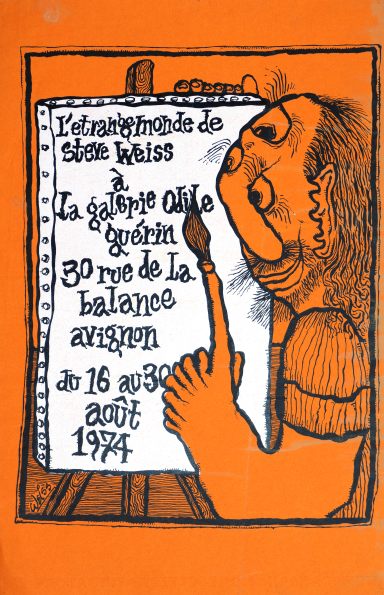 L'etrange monde de
Steve Weiss
à
La galerie Odile
guérin
30 rue de La
balance
avignon
du 16 au 30
août
1974